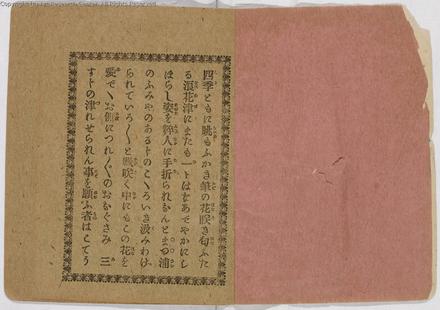 四季ともに眺もふかき華の花咲き匂ふた
る浪花津にまたも一トはなあでやかにし
ほらし姿を粹人に手折られなんとまつ浦
のふみやのあるトのこゝろいき汲みわけ
られていろ〳〵と戲咲く中にもこの花を
愛で、お側につれ〴〵のおなぐさみ 三
すトの津れせられん事を願ふ者はこてう